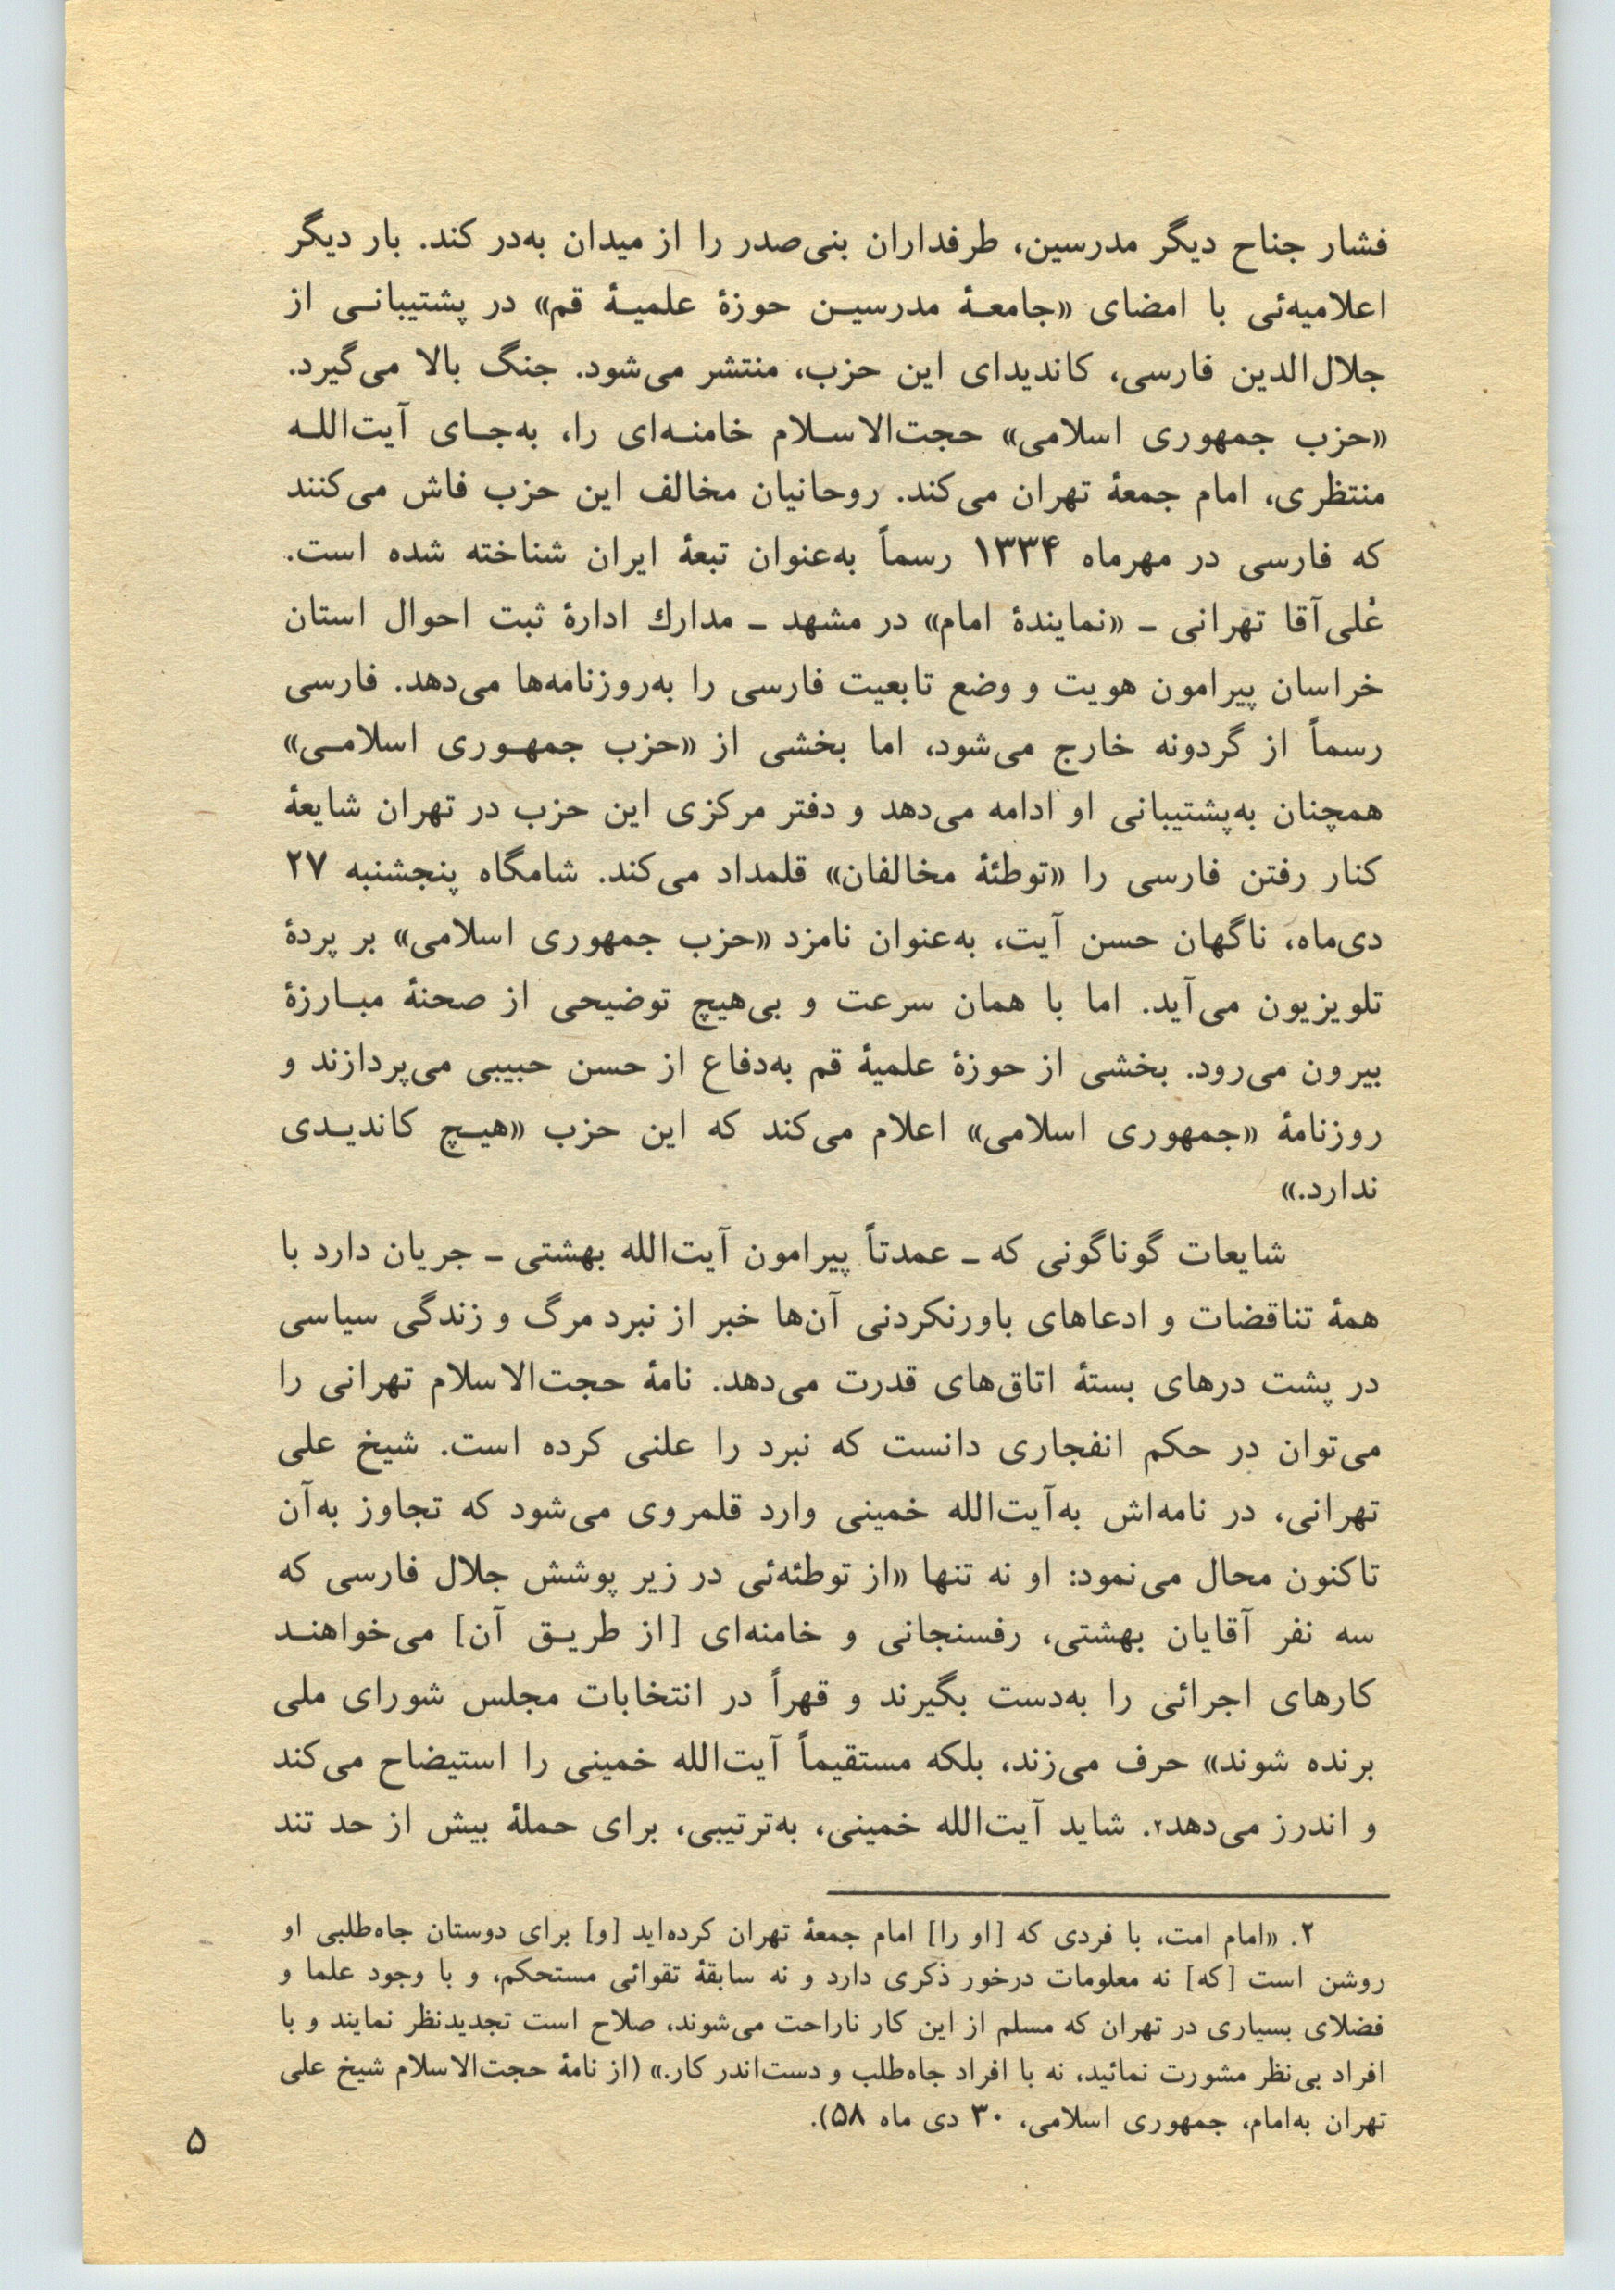 فشار جناح دیگر مدرسین، طرفداران بنی‌صدر را از میدان به‌در کند. بار دیگر
اعلامیه‌ئی با امضای «جامعهٔ مدرسین حوزهٔ علمیهٔ قم» در پشتیبانی از
جلال‌الدین فارسی، کاندیدای این حزب، منتشر می‌شود. جنگ بالا می‌گیرد.
«حزب جمهوری اسلامی» حجت‌الاسلام خامنه‌ای را، به‌جای آیت‌الله
منتظری، امام جمعهٔ تهران می‌کند. روحانیان مخالف این حزب فاش می‌کنند
که فارسی در مهرماه ۱۳۳۴ رسماً به‌عنوان تبعهٔ ایران شناخته شده است.
علی‌آقا تهرانی ـ «نمایندهٔ امام» در مشهد ـ مدارك ادارهٔ ثبت احوال استان
خراسان پیرامون هویت و وضع تابعیت فارسی را به‌روزنامه‌ها می‌دهد. فارسی
رسماً از گردونه خارج می‌شود، اما بخشی از «حزب جمهوری اسلامی»
همچنان به‌پشتیبانی او ادامه می‌دهد و دفتر مرکزی این حزب در تهران شایعهٔ
کنار رفتن فارسی را «توطئهٔ مخالفان» قلمداد می‌کند. شامگاه پنجشنبه ۲۷
دی‌ماه، ناگهان حسن آیت، به‌عنوان نامزد «حزب جمهوری اسلامی» بر پردهٔ
تلویزیون می‌آید. اما با همان سرعت و بی‌هیچ توضیحی از صحنهٔ مبارزهٔ
بیرون می‌رود. بخشی از حوزهٔ علمیهٔ قم به‌دفاع از حسن حبیبی می‌پردازند و
روزنامهٔ «جمهوری اسلامی» اعلام می‌کند که این حزب «هیچ کاندیدی
ندارد.»
شایعات گوناگونی که ـ عمدتاً پیرامون آیت‌الله بهشتی ـ جریان دارد با
همهٔ تناقضات و ادعاهای باورنکردنی آن‌ها خبر از نبرد مرگ و زندگی سیاسی
در پشت درهای بستهٔ اتاق‌های قدرت می‌دهد. نامهٔ حجت‌الاسلام تهرانی را
می‌توان در حکم انفجاری دانست که نبرد را علنی کرده است. شیخ علی
تهرانی، در نامه‌اش به‌آیت‌الله خمینی وارد قلمروی می‌شود که تجاوز به‌آن
تاکنون محال می‌نمود: او نه تنها «از توطئه‌ئی در زیر پوشش جلال فارسی که
سه نفر آقایان بهشتی، رفسنجانی و خامنه‌ای [از طریق آن] می‌خواهند
کارهای اجرائی را به‌دست بگیرند و قهراً در انتخابات مجلس شورای ملی
برنده شوند» حرف می‌زند، بلکه مستقیماً آیت‌الله خمینی را استیضاح می‌کند
و اندرز می‌دهد۲. شاید آیت‌الله خمینی، به‌ترتیبی، برای حملهٔ بیش از حد تند
۲. «امام امت، با فردی که [او را] امام جمعهٔ تهران کرده‌اید [و] برای دوستان جاه‌طلبی او
روشن است [که] نه معلومات درخور ذکری دارد و نه سابقهٔ تقوائی مستحکم، و با وجود علما و
فضلای بسیاری در تهران که مسلم از این کار ناراحت می‌شوند، صلاح است تجدیدنظر نمایند و با
افراد بی‌نظر مشورت نمائید، نه با افراد جاه‌طلب و دست‌اندر کار.» (از نامهٔ حجت‌الاسلام شیخ علی
تهران به‌امام، جمهوری اسلامی، ۳۰ دی ماه ۵۸).
۵